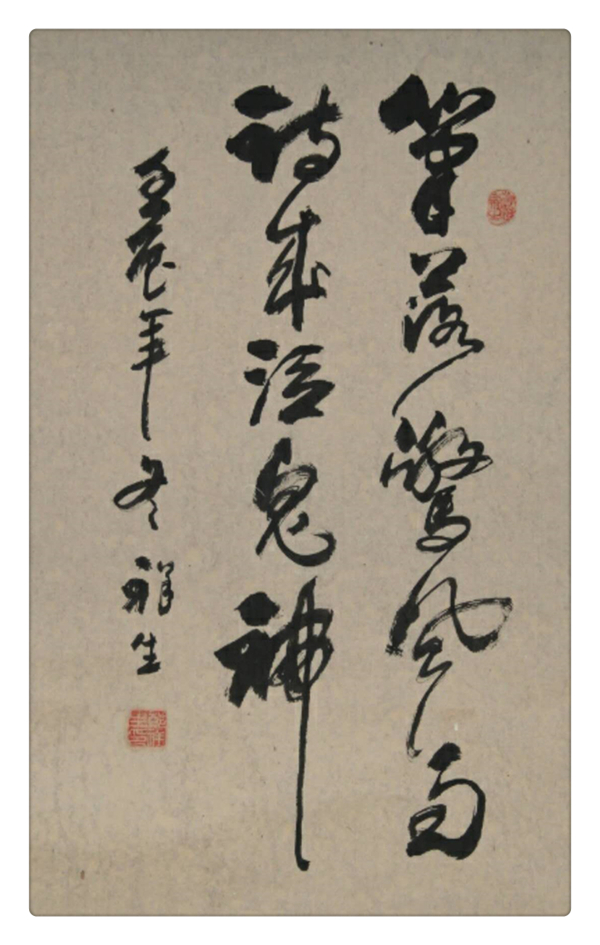 筆落驚風雨
詩成泣鬼神
壬辰年冬祥生